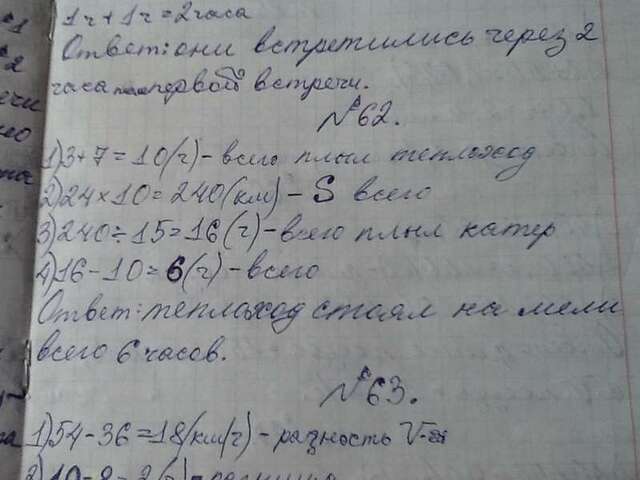 1ч + 1ч = 2 часа
Ответ: они встретились через 2
часа первой встречи.
№62.
1) 3 + 7 = 10 (ч) - всего плыл теплоход
2) 24 × 10 = 240 (км) - S всего
3) 240 ÷ 15 = 16 (ч) - всего плыл катер
4) 16 - 10 = 6 (ч) - всего
Ответ: теплоход стоял на мели
всего 6 часов.
№63.
1) 54 - 36 = 18 (км/ч) - разность V
2) 10 - 8 = 2 (ч) - разница